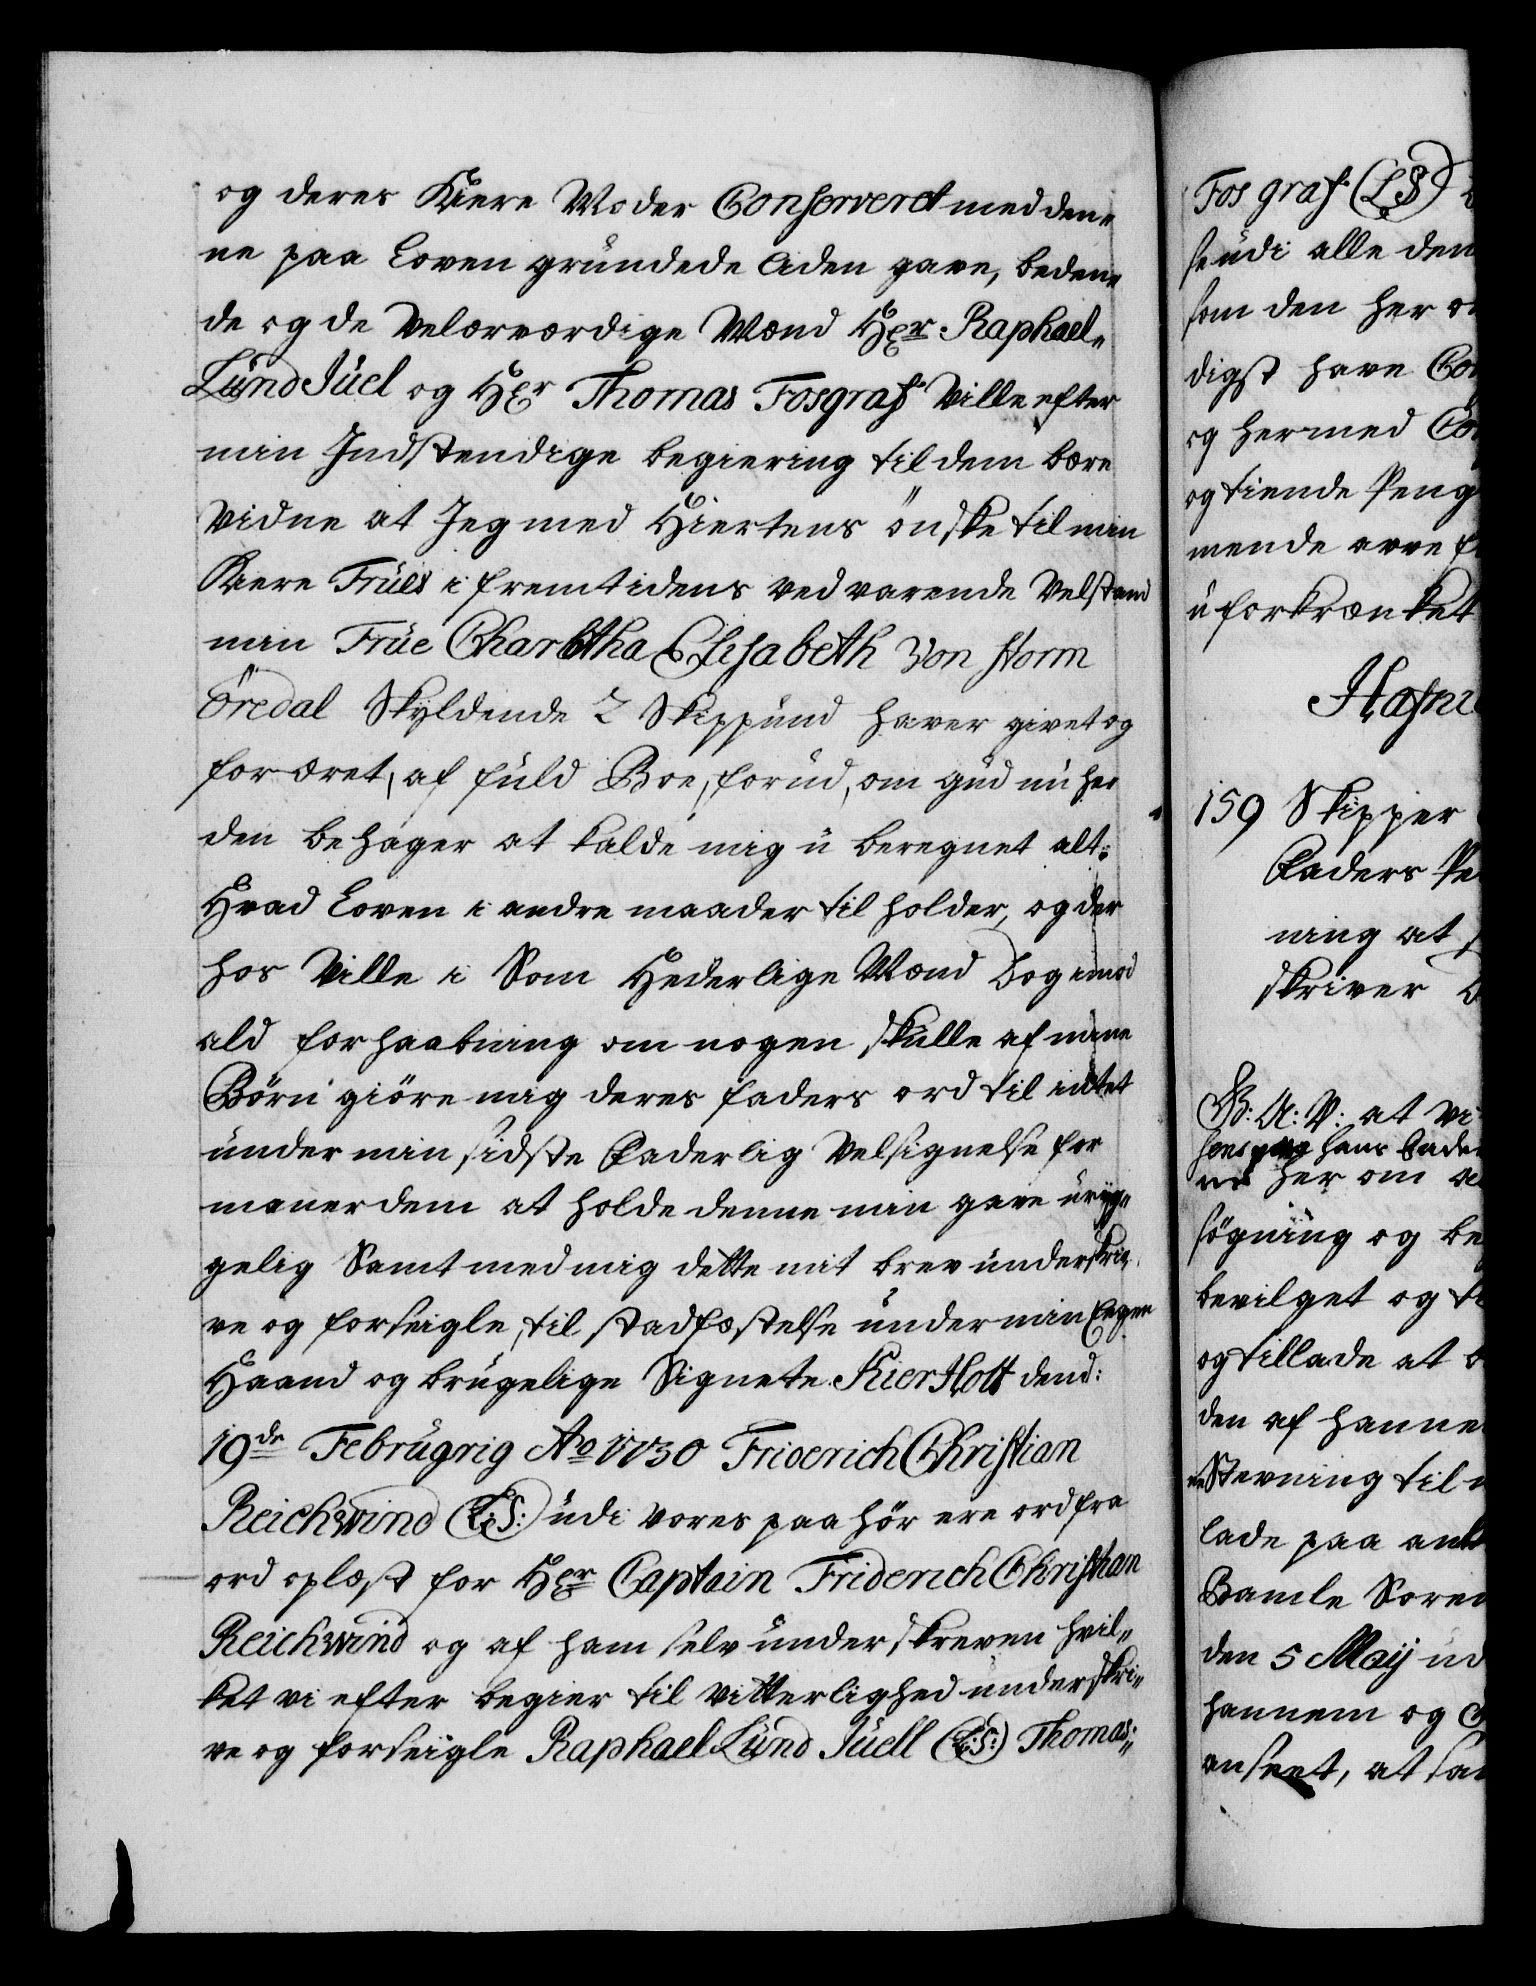 og deres Kiere Moder Conserveret med den„
ne paa Loven grundede Aden gave, beden„
de og de Velærværdige Mænd Hr Raphael„
Lund Juel og Hr Thomas Fosgraf Ville efter
min Indstendige begiering til dem bære
Vidne at Jeg med Hiertens önske til min
Kiere Frues i fremtidens ved varende Velstand
min Frue Charlotha Elisabeth von Storm
Öredal Skyldende 2 Skippund haver givet og
foræret, af fuld Boe, forud, om gud nu her
den behager at kalde mig u beregnet alt:
Hvad Loven i andre maader til holder, og der
hos Ville i Som Hederlige Mænd Dog imod
ald forhaabning om nogen skulle af mine
Börn giöre mig deres faders ord til intet
under min sidste Faderlig Velsignelse for
maner dem at holde denne min gave uryg„
gelig Samt med mig dette mit brev underskri„
ve og forseigle, til stadfæstelse under min Egen
Haand og brugelige Signete. Kierstott dend:
19de Februarij Ao 1730 Friderich Christian
Reichwind (L:S:) udi vores paa hör ere ord fra
ord oplæst for Hr Captain Friderich Christian
Reichwind og af ham selv under skreven hvil„
ket vi efter begier til Vitterlighed underskri„
ve og forseigle Raphael Lund Juell (L:S:) Thomas:„
Fosgraf (LS)
se udi alle den
som den her
digst have
og hermed
og tiende Peng
mende arve
uforkrænket
Hafni
159 Skipper
Faders
ning at
skriver
G: A: V: at Vi
hans
her om
sögning og be
bevilget og
og tillade at
den af hanne
Stevning til
lade paa ank
Bamle Soren
den 5 Maij ud
hannem og
anseet, at saa